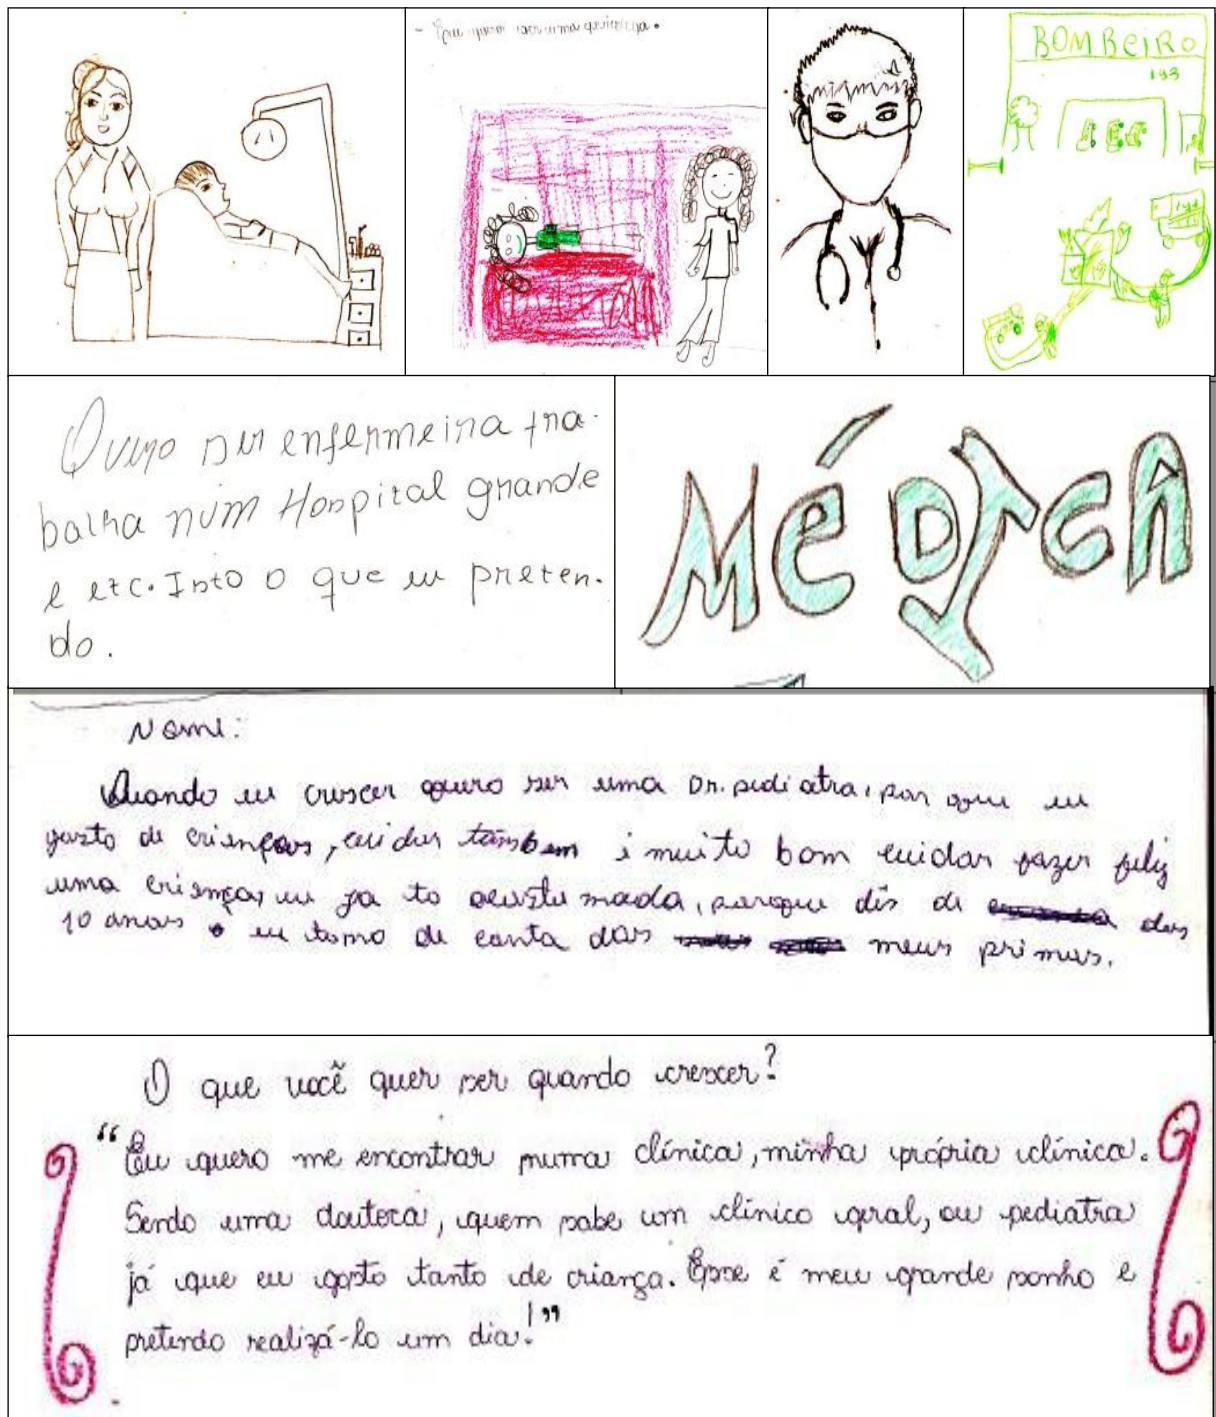 - Eu quero ser uma
BOMBEIRO
193
Quero ser enfermeira tra-
balha num Hospital grande
e etc. Isto o que eu preten-
do.
MÉDICA
Nome:
Quando eu cruscer quero ser uma Dr. pediatra, por que eu
gosto de crienças, cuidar também i muito bom cuidar fazer feliz
uma criença, eu ja to acustumada, porque dis de dos
10 anos eu tomo de conta das meus primus.
O que você quer ser quando crescer?
"Eu quero me encontrar numa clínica, minha própria clínica.
Sendo uma doutora, quem sabe um clínico geral, ou pediatra
já que eu gosto tanto de criança. Esse é meu grande sonho e
pretendo realizá-lo um dia!"